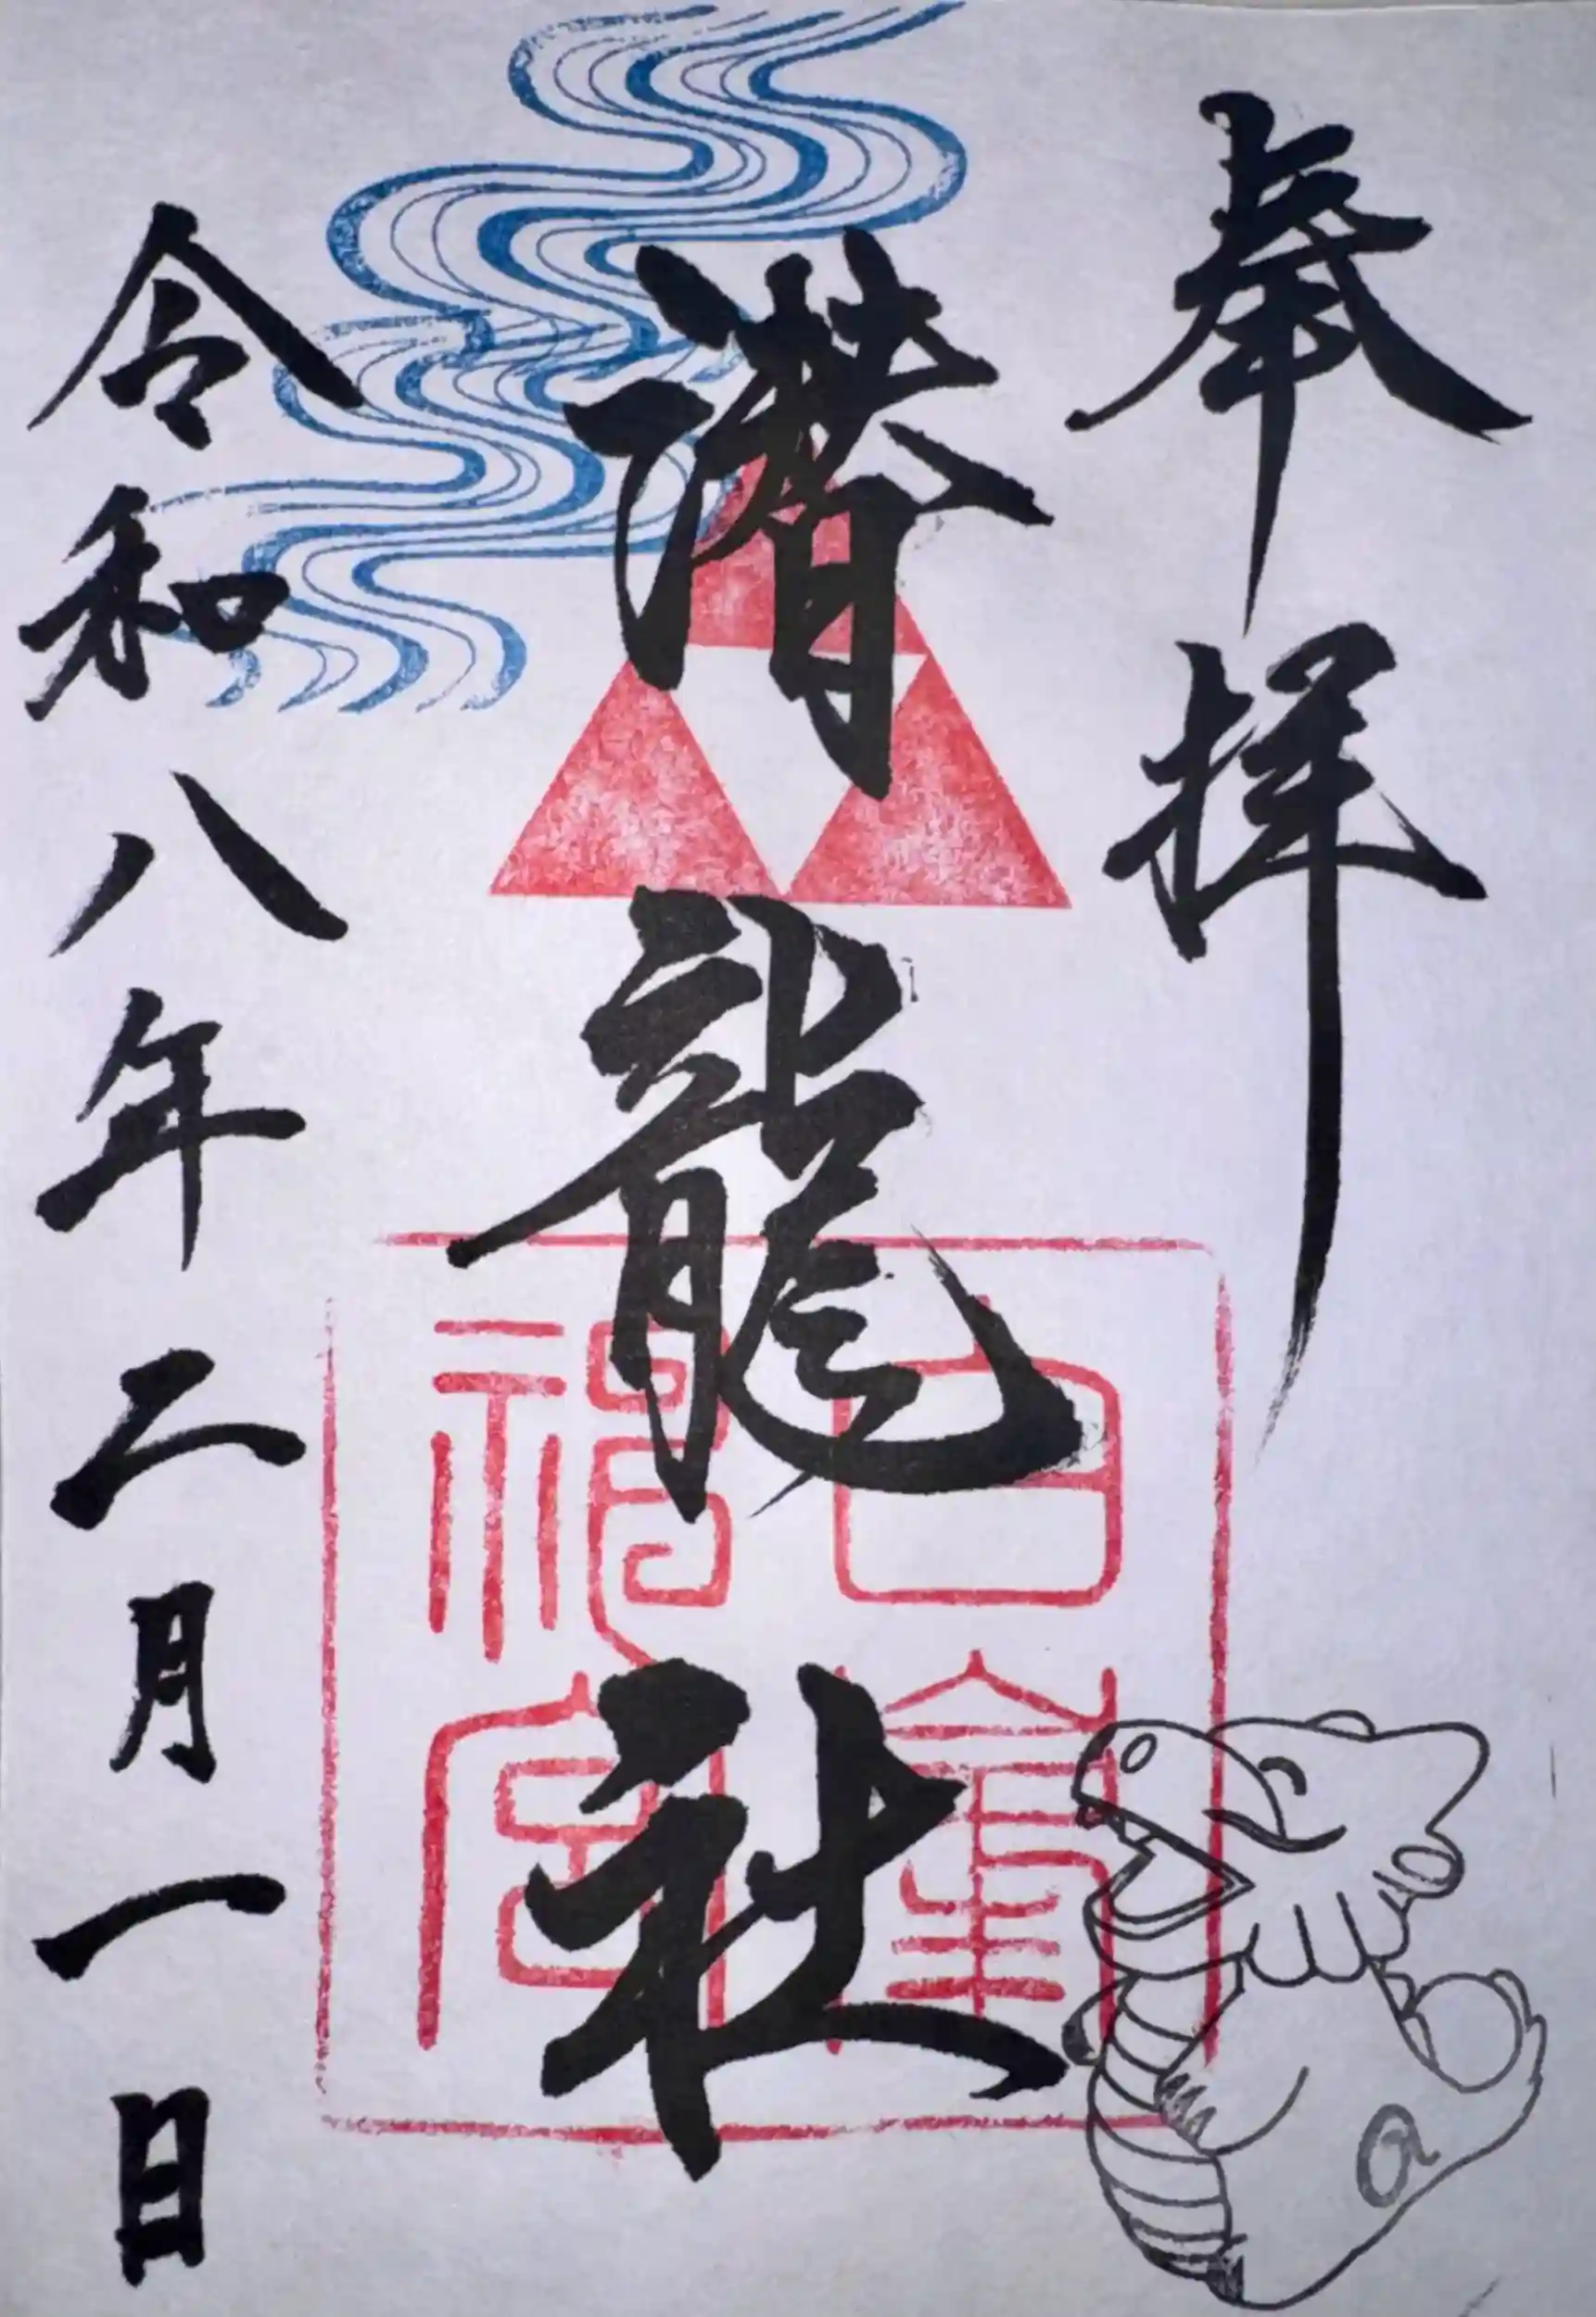 奉拝
潜龍社
白峯神宮
令和八年二月一日